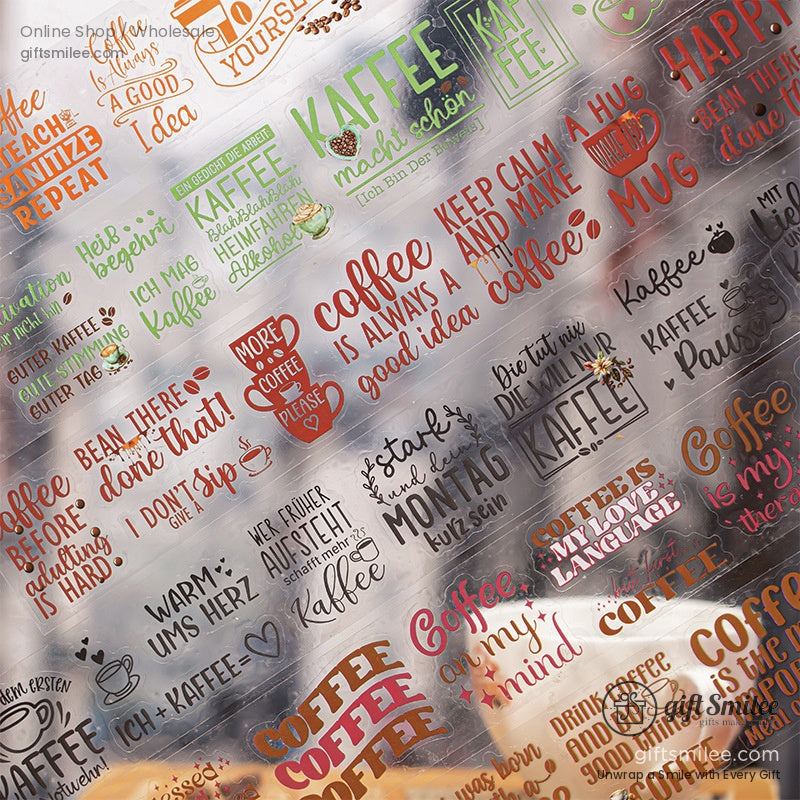 Online Shop / Wholesale
giftsmilee.com
Coffee
Is Always
A GOOD
Idea
YOURSE
TEACH
SANITIZE
REPEAT
EIN GEDICHT DIE ARBEIT:
KAFFEE
BlahBlahBlah
HEIMFAHREN
Alkohol
KAFFEE
macht schön
[Ich Bin Der Beweis]
KAF
FEE
HAPPY
BEAN THERE
done
Heiß
begehrt
ICH MAG
Kaffee
GUTER KAFFEE
GUTE STIMMUNG
GUTER TAG
MORE
COFFEE
PLEASE
coffee
IS ALWAYS A
good idea
KEEP CALM
AND MAKE
coffee
A HUG
MUG
BEAN THERE
done that!
I DON'T
GIVE A
Sip
BEFORE
adulting
IS HARD
WARM
UMS HERZ
WER FRÜHER
AUFSTEHT
schafft mehr
Kaffee
stark
und dein
MONTAG
kurz sein
Die tut nix
DIE WILL NUR
KAFFEE
Kaffee
KAFFEE
Pause
MIT
DEM ERSTEN
KAFFEE
ICH + KAFFEE =
COFFEE
COFFEE
COFFEE
Coffee
on my
mind
COFFEE IS
MY LOVE
LANGUAGE
COFFEE
Coffee
is my
DRINK COFFEE
AND
GOOD
was born
is the
gift Smilee
giftsmilee.com
Unwrap a Smile with Every Gift